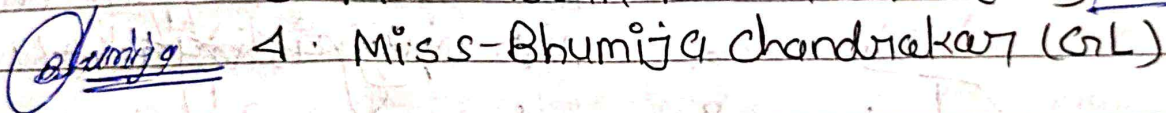 Bhumija 4. Miss-Bhumija Chandrakar (GL)